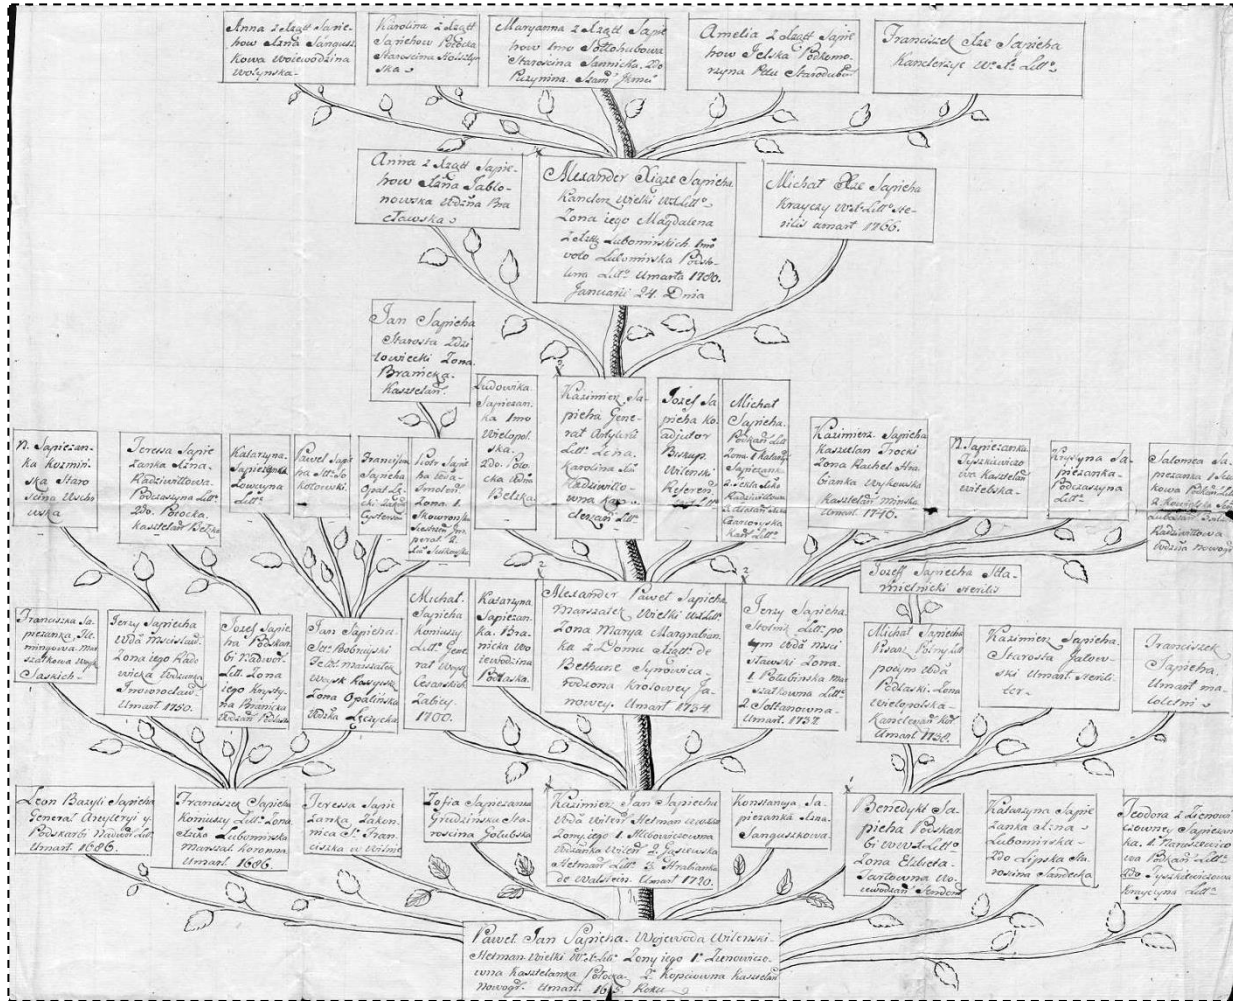 Anna z Xząt Sapie-
how Xżna Sangusz-
kowa Woiewodzina
Wołynska
Karolina z Xząt
Sapiehow Potocka
Staroscina
Maryanna z Xząt Sapie
how 1mo Sołłohubowa
Staroscina Sannicka 2do
Puzynina
Amelia z Xząt Sapie
how Jelska Podkomo-
rzyna Ptu Starodubo
Franciszek Xże Sapieha
Kanclerzyc W. X. Litto
Anna z Xząt Sapie-
how Xżna Jabło-
nowska Wdzina Bra
cławska
Alexander Xiąze Sapieha
Kanclerz Wielki W X Litto
Zona iego Magdalena
z Xżąt Lubomirskich 1mo
voto Lubomirska Podsto-
lina Litt. Umarła 1780.
Januarii 24. Dnia
Michał Xże Sapieha
Krayczy W. X. Litto ste-
rilis umarł 1766.
Jan Sapieha
Starosta Zdzi
towiecki Zona.
Branicka
Kasztelan.
Ludowika
Sapiezan-
ka 1mo
Wielopol-
ska.
2do. Poto-
cka Wdna
Belzka
Kazimierz Sa-
pieha Gene-
rał Artylerii
Litt. Zona
Karolina
Radziwiłło-
wna Kan-
clerzan. Litt.
Jozef Sa
pieha Ko
adjutor
Biskup.
Wilenski
Referen.
Litt
Michał
Sapieha.
Podkan. Litt
Zona. 1 Katarz.
Sapiezanka
2. Tekla
Radziwiłłowa
Czartoryska
Kan. Litt.
Kazimierz. Sapieha
Kasztelan Trocki
Zona Rachel Hra
bianka Wykowska
Kasztelan. Minska
Umarł. 1740.
N. Sapiezanka
Tyszkiewiczo
wa Kasztelan
Witebska.
Krystyna Sa-
piezanka.
Podczaszyna
Litt.
Salomea Sa-
piezanka 1
kowa Podkan. Litt
Radziwiłłowa
Wdzina Nowogr.
N. Sapiezan-
ka Kozmin-
ska Staro
scina Wsch-
owska
Teresa Sapie
zanka Xzna.
Radziwiłłowa.
Podczaszyna Litt.
2do. Potocka.
Kasztelan. Belzka
Katarzyna.
Sapiezanka
Łowczyna
Litt.
Paweł Sapie
ha Str. So
kołowski.
Franciszek
Sapieha
Opat
Cysterson
Piotr Sapie
ha Woia
Smolen.
Zona 1.
Skowronska
Siestrzen. Im
perat. 2.
Sułkowska
Jozeff Sapiecha Sta-
mielnicki sterilis
Franciszka Sa-
piezanka, Fle-
mingowa Mar
szałkowa Woysk
Saskich.
Jerzy Sapiecha
Wda Mscisław.
Zona iego Rado
wicka Wdzanka
Inowrocław.
Umarł. 1750.
Jozef Sapie
ha Podskar-
bi Nadwor.
Litt. Zona
iego Krysty-
na Branicka
Wdzan. Podlas.
Jan Sapieha.
Str. Bobruyski
Feldmarszałek
Woysk Rossysk.
Zona Opalinska
Wdzka Łęczycka
Michał.
Sapieha
Koniuszy
Litt. Gene
rał Woysk
Cesarskich
Zabity.
1700.
Katarzyna
Sapiezan-
ka. Bra-
nicka Wo
iewodzina
Podlaska.
Alexander Paweł Sapieha
Marszałek Wielki W.X.Litt.
Zona Marya Margrabian-
ka z Domu Xząt de
Bethune Synowica-
rodzona Krolowey Ja-
nowey. Umarł 1734
Jerzy Sapieha.
Stolnik Litt. po
tym Wda Msci
sławski Zona.
1 Połubinska Mar
szałkowna Litt.
2 Sołtanowna.
Umarł. 1732.
Michał Sapieha
Pisarz Polny Litt
potym Wda
Podlaski. Zona
Wielopolska-
Kanclerzan. Kor.
Umarł 1738.
Kazimierz Sapieha.
Starosta Jałow-
ski Umarł Sterili
ter.
Franciszek
Sapieha,
Umarł ma-
łoletni
Leon Bazyli Sapieha
Generał Arty leryi y
Podskarbi Nadwor. Litt.
Umarł. 1686.
Franciszek Sapieha
Koniuszy Litt. Zona
Xzka Lubomirska
Marszał. Koronna.
Umarł. 1686.
Teressa Sapie
zanka, Zakon-
nica S. Fran-
ciszka w Wilnie
Zofia Sapiezanka
Grudzinska Sta-
roscina Golubska
Kazimierz Jan Sapieha
Wda Wilen. Hetman
Zony iego 1 Hlebowiczowna
Wdzanka Wilen. 2 Gąsiewska
Hetman. Litt. 3. Hrabianka
de Walstein. Umarł 1720.
Konstancya. Sa-
piezanka Xzna.
Sanguszkowa.
Benedykt Sa-
pieha Podskar
bi W.X. Litto
Zona Elzbieta.
Tarłowna Wo-
iewodzan. Sendom
Katarzyna Sapie
zanka Xzna
Lubomirska-
2do Lipska Sta
roscina Sandecka
Teodora z Zienowi
czowney Sapiezan-
ka. 1. Naruszewiczo
wa Podkan. Litt.
2do Tyszkiewiczowa
Litt.
Paweł Jan Sapieha. Wojewoda Wilenski.
Hetman Wielki W.X. Litt. Zony iego 1. Zienowiczo-
wna Kasztelanka Połocka 2. Kopciowna Kasztelan
Nowogr. Umarł. Roku